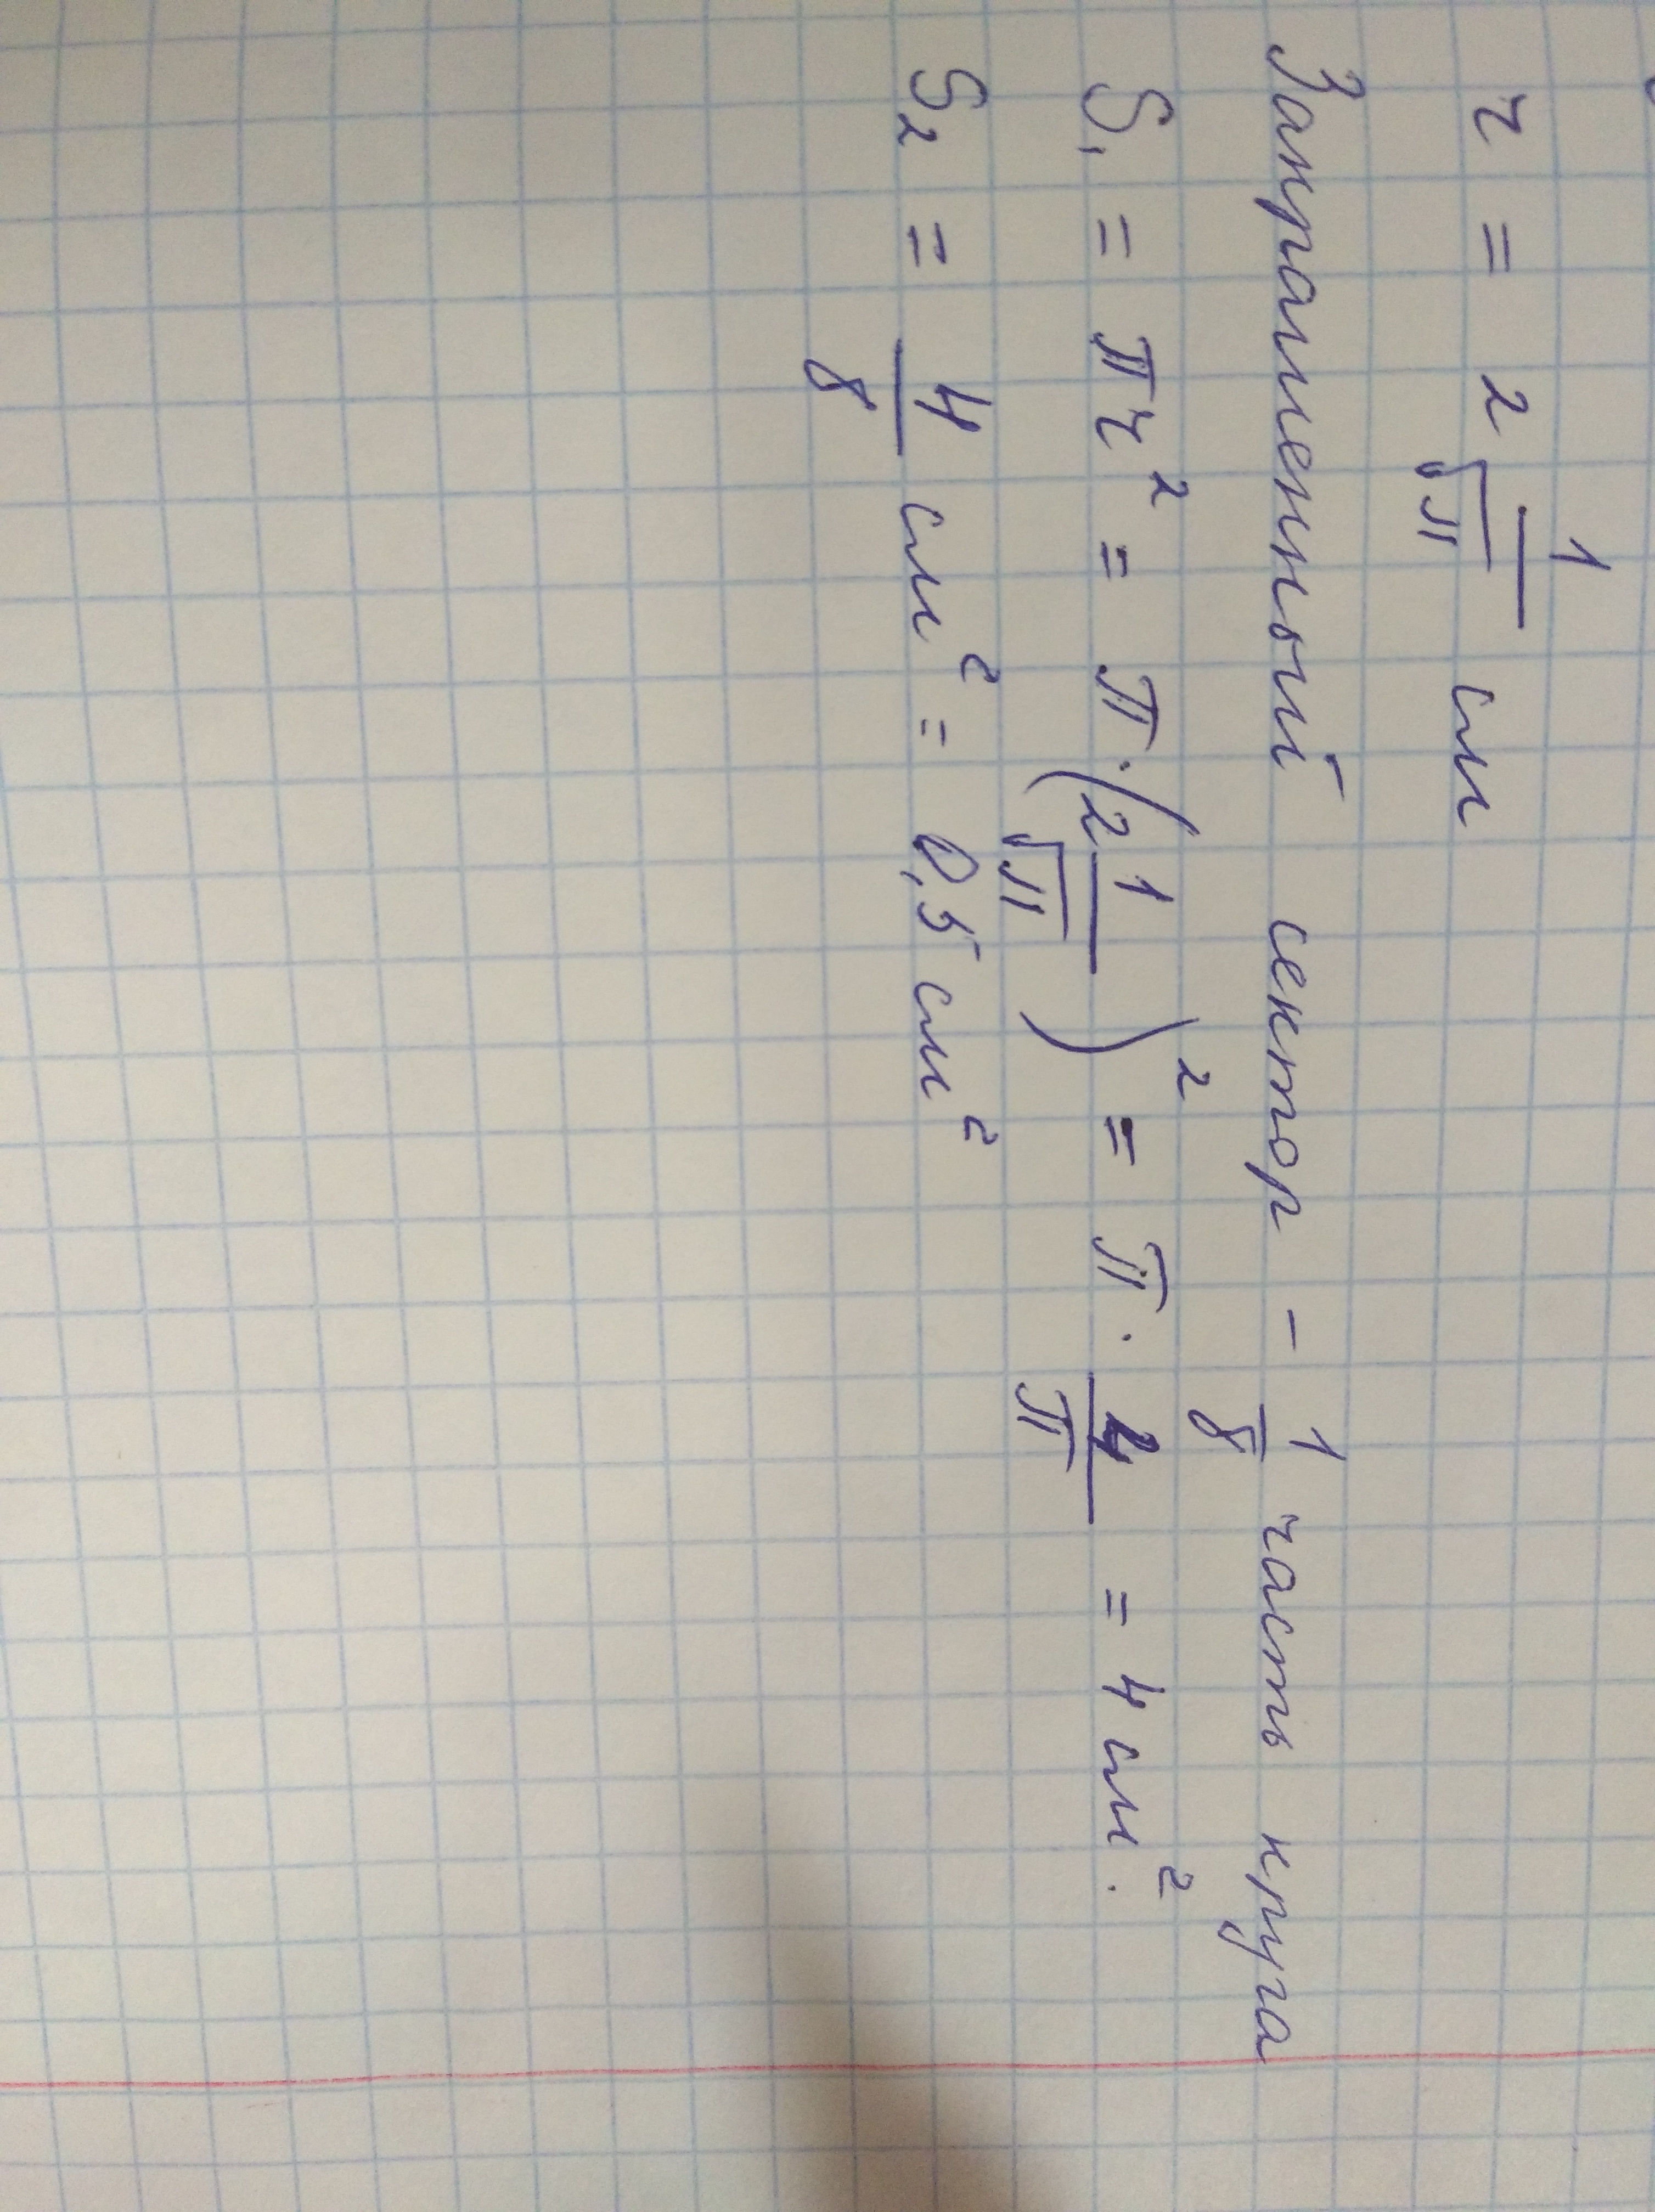 r = 2 1/√π см
Закрашенный сектор - 1/8 часть круга
S₁ = πr² = π·(2 1/√π)² = π · 4/π = 4 см².
S₂ = 4/8 см² = 0,5 см²